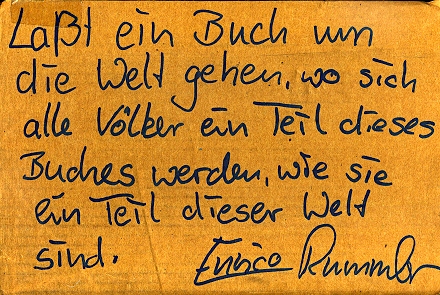 Laßt ein Buch um
die Welt gehen, wo sich
alle Völker ein Teil dieses
Buches werden, wie sie
ein Teil dieser Welt
sind. Enrico Rummler